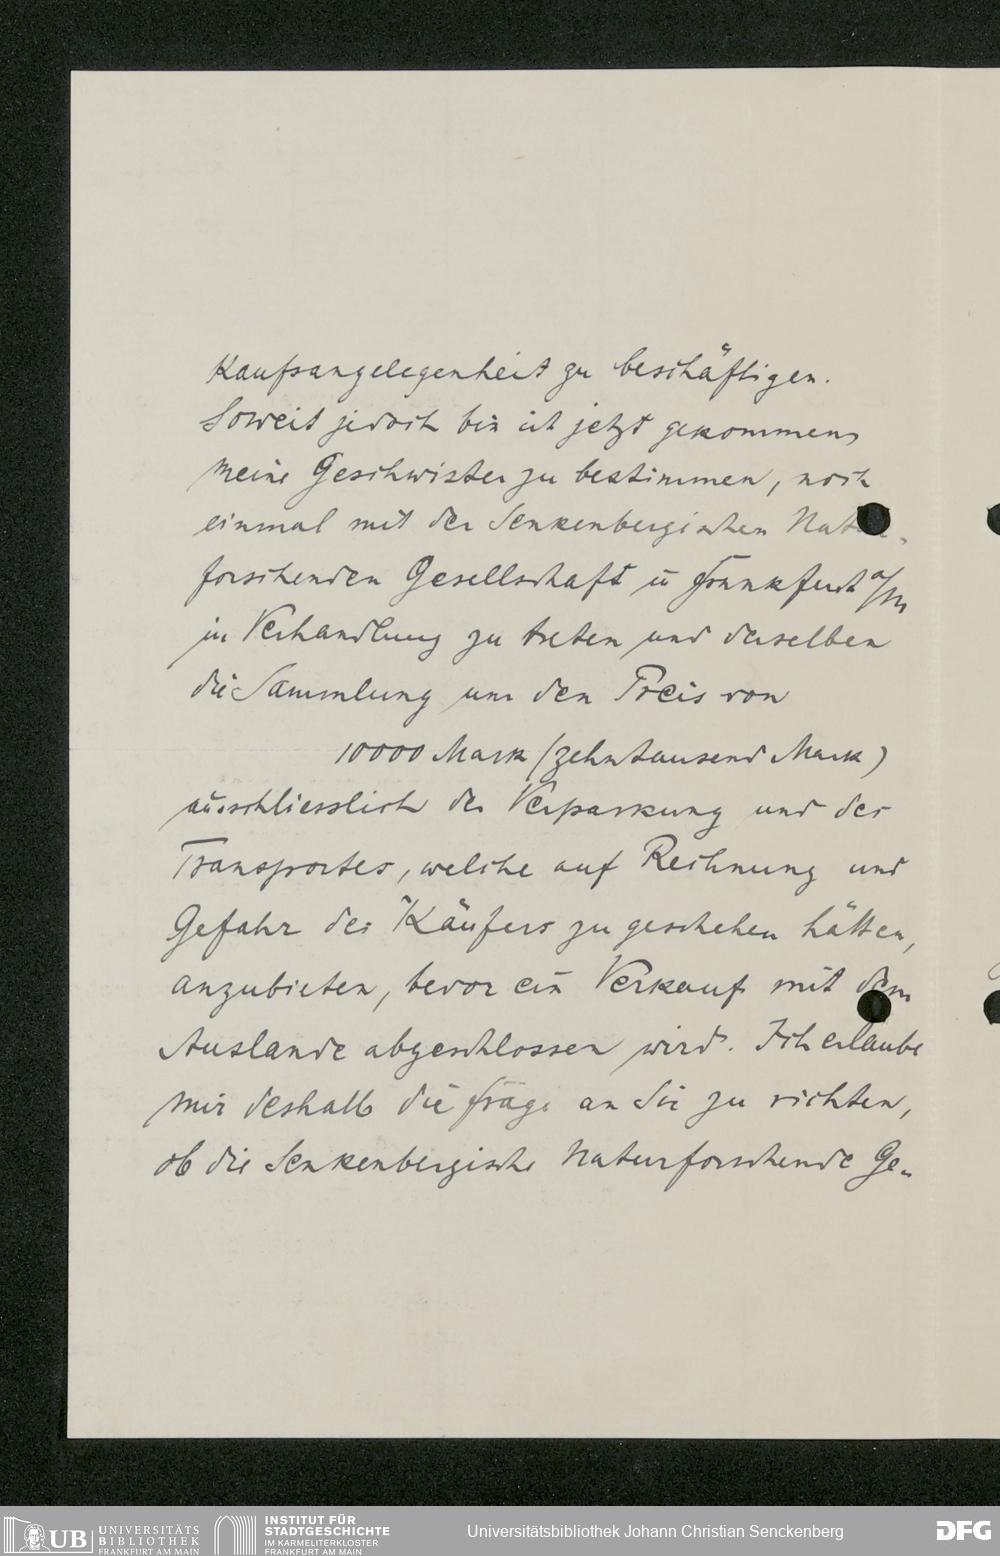 Kaufsangelegenheit zu beschäftigen.
Soweit jedoch bin ich jetzt gekommen,
meine Geschwister zu bestimmen, noch
einmal mit der Senkenbergischen Natur-
forschenden Gesellschaft in Frankfurt a/M
in Verhandlung zu treten und derselben
die Sammlung um den Preis von
10000 Mark (zehntausend Mark)
ausschliesslich der Verpackung und des
Transportes, welche auf Rechnung und
Gefahr des Käufers zu geschehen hätten,
anzubieten, bevor ein Verkauf mit dem
Auslande abgeschlossen wird. Ich erlaube
mir deshalb die Frage an Sie zu richten,
ob die Senkenbergische Naturforschende Ge-
UB UNIVERSITÄTS
BIBLIOTHEK
FRANKFURT AM MAIN
INSTITUT FÜR
STADTGESCHICHTE
IM KARMELITERKLOSTER
FRANKFURT AM MAIN
Universitätsbibliothek Johann Christian Senckenberg
DFG